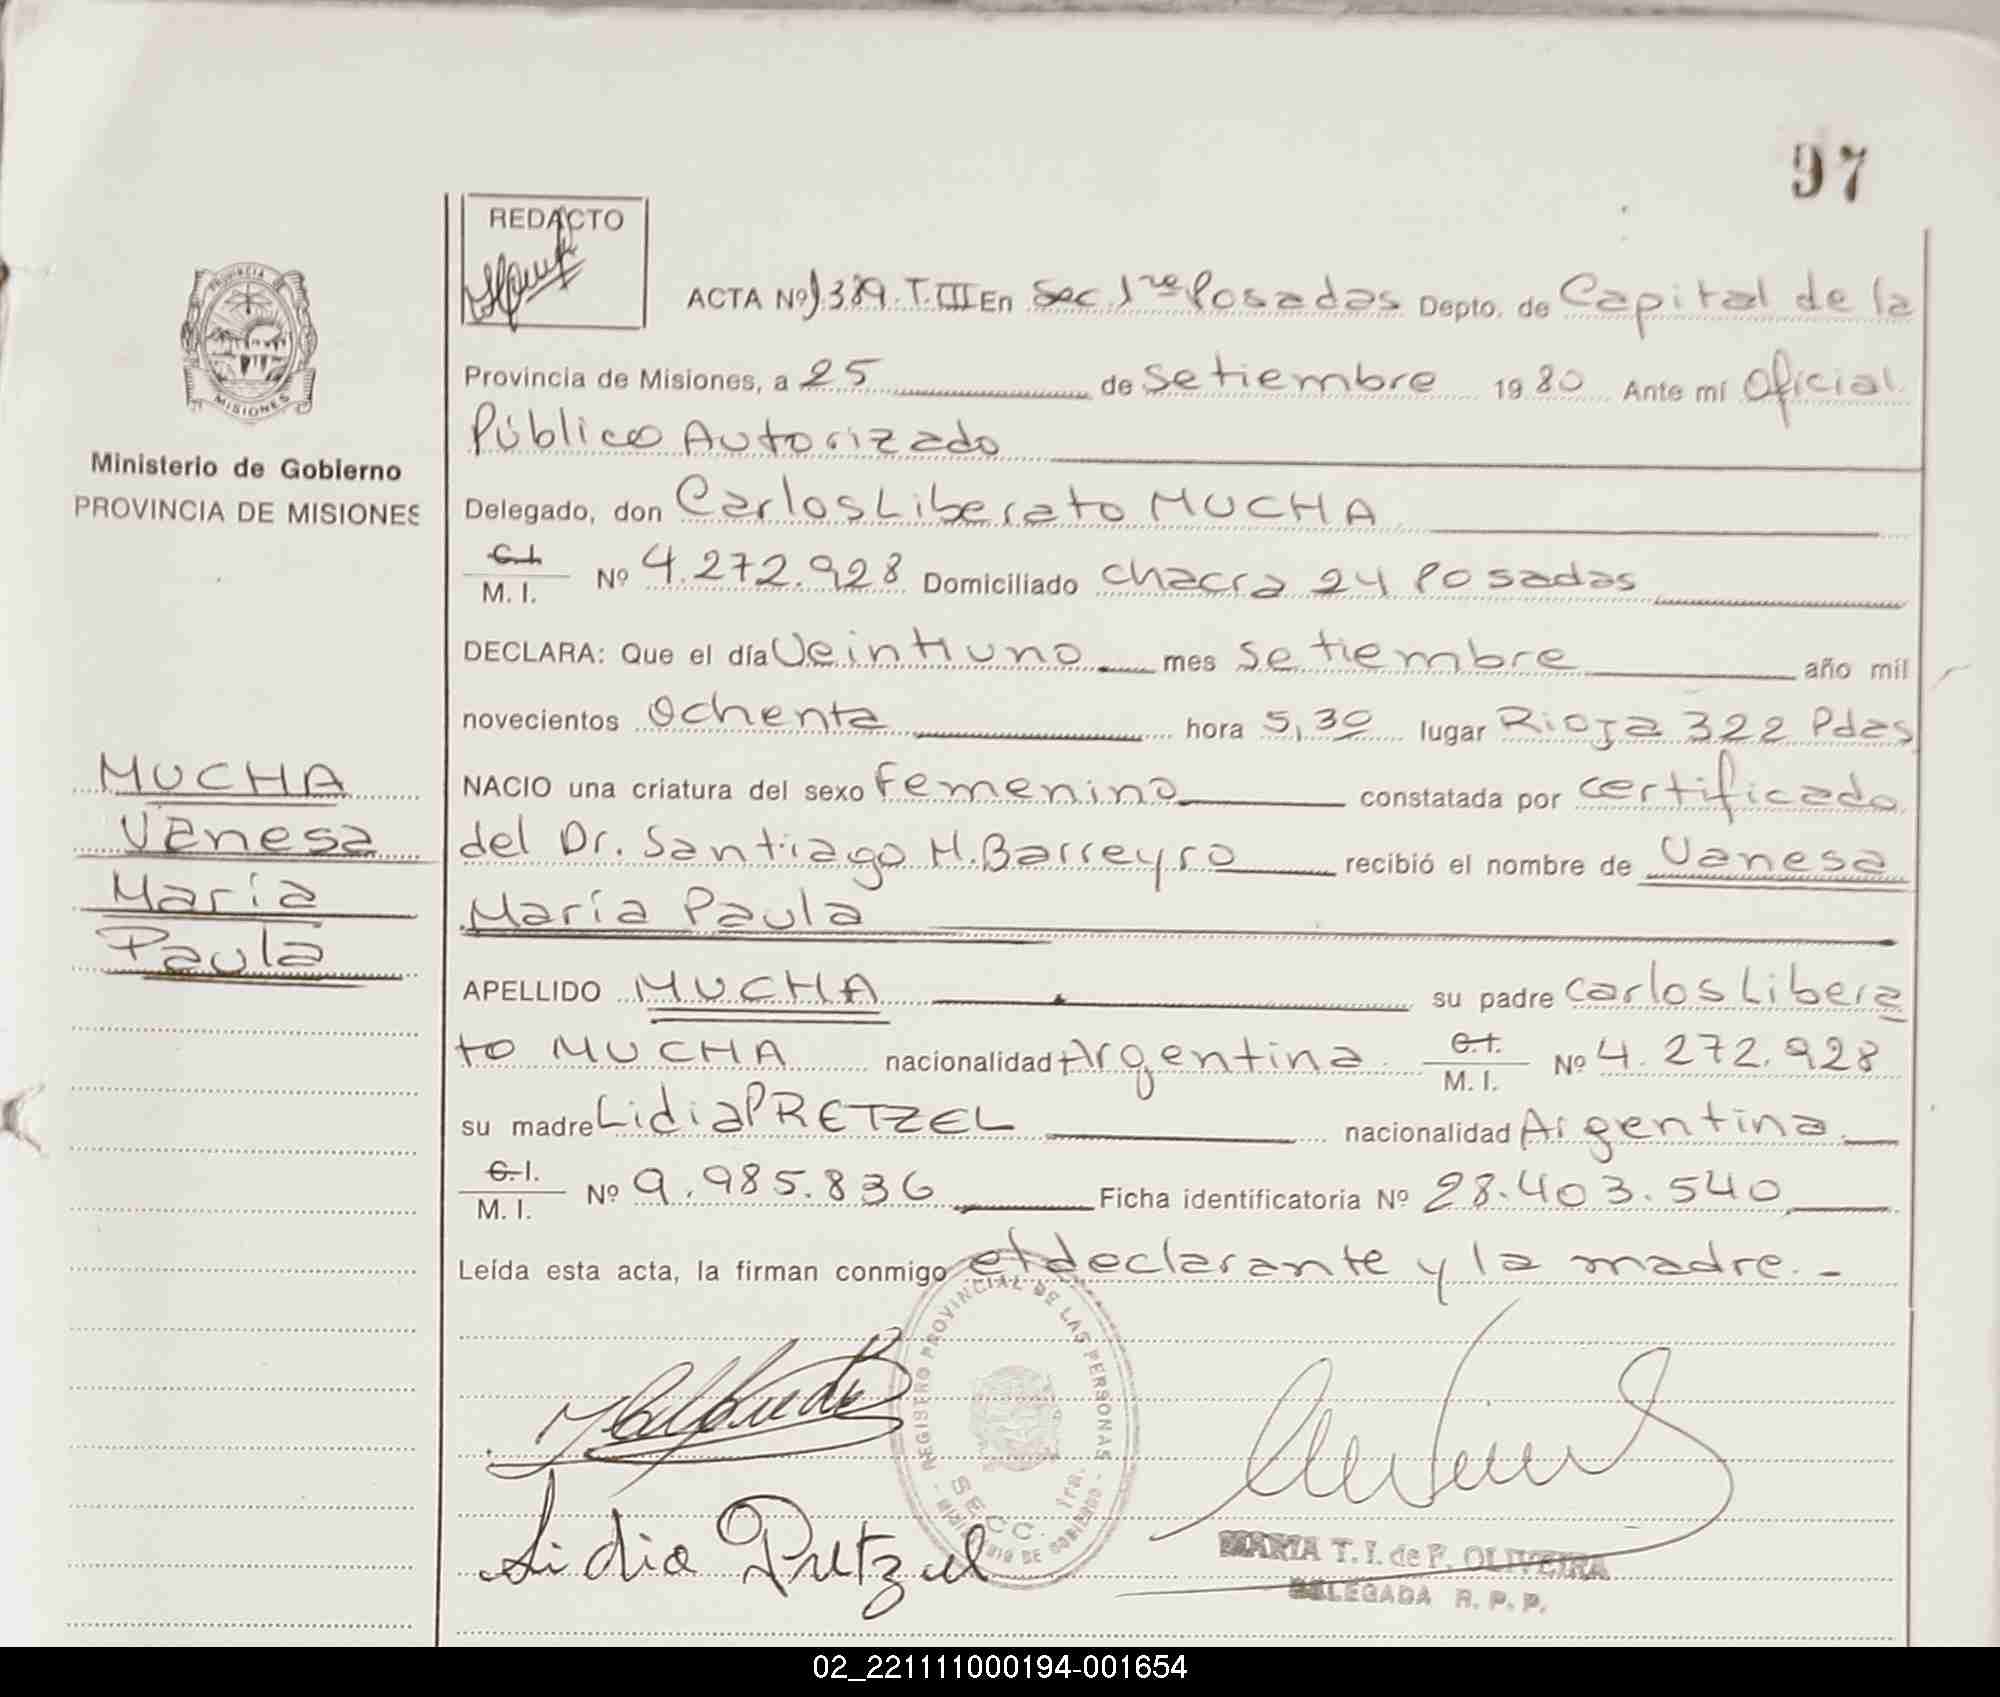 97
REDACTO
ACTA Nº 1389. T. III En Sec. 1ra Posadas Depto. de Capital de la
PROVINCIA
MISIONES
Provincia de Misiones, a 25 de setiembre 1980 Ante mí Oficial
Público Autorizado
Ministerio de Gobierno
PROVINCIA DE MISIONES
Delegado, don Carlos Liberato MUCHA
C.I. M. I. Nº 4.272.928 Domiciliado chacra 24 Posadas
DECLARA: Que el día Veintiuno mes setiembre año mil
novecientos Ochenta hora 5,30 lugar Rioja 322 Pdas
MUCHA
Vanesa
María
Paula
NACIO una criatura del sexo Femenino constatada por certificado
del Dr. Santiago H. Barreyro recibió el nombre de Vanesa
María Paula
APELLIDO MUCHA su padre Carlos Libera
to MUCHA nacionalidad Argentina. C.I. M. I. Nº 4.272.928
su madre Lidia PRETZEL nacionalidad Argentina
C.I. M. I. Nº 9.985.836 Ficha identificatoria Nº 28.403.540
Leída esta acta, la firman conmigo el declarante y la madre.-
REGISTRO PROVINCIAL DE LAS PERSONAS
SECC. 1ra.
MINISTERIO DE GOBIERNO
Lidia Pretzel
MARIA T. I. de F. OLIVEIRA
DELEGADA R. P. P.
02_221111000194-001654